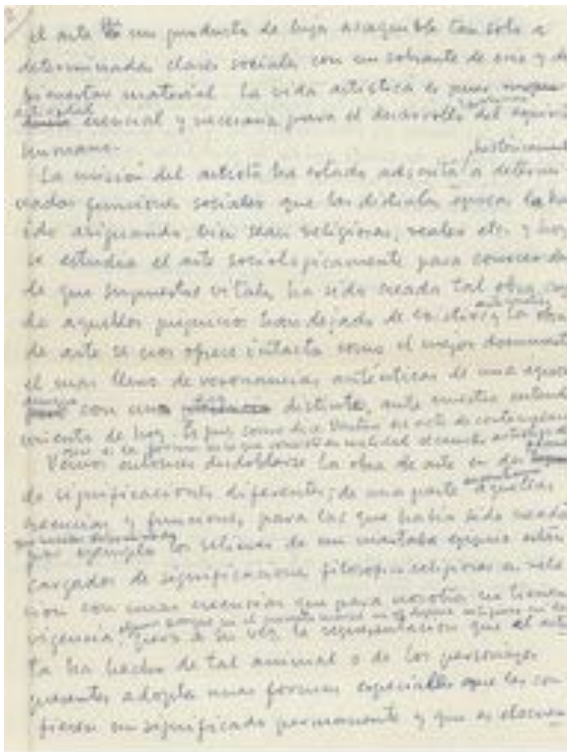 el arte un producto de lujo asequible tan solo a
determinadas clases sociales con un sobrante de oro y de
bienestar material. La vida artística es pues
actividad esencial y necesaria para el desarrollo del espíritu
humano.
históricamente
La misión del artista ha estado adscrita a determi-
nadas funciones sociales que las distintas épocas le ha
ido asignando, bien sean religiosas, reales etc. y hoy
se estudia el arte sociologicamente para conocer
de que supuestos vitales ha sido creada tal obra,
de aquellos han dejado de existir y la obra
de arte se nos ofrece intacta como el mejor documento
el mas lleno de resonancias auténticas de una época
con una distinta, ante nuestro entendi-
miento de hoy. Es pues como dice acto de contemplación
Vemos entonces desdoblarse la obra de arte en dos
de significaciones diferentes; de una parte aquellas
creencias y funciones para las que había sido creada
por ejemplo los relieves de un mastaba egipcio están
cargados de significaciones filosofico religiosas en rela-
cion con unas creencias que para nosotros no tienen
vigencia, pero a su vez la representacion que el artis-
ta ha hecho de tal animal o de los personajes
presentes adopta unas formas especiales que les con-
fieren un significado permanente y que es